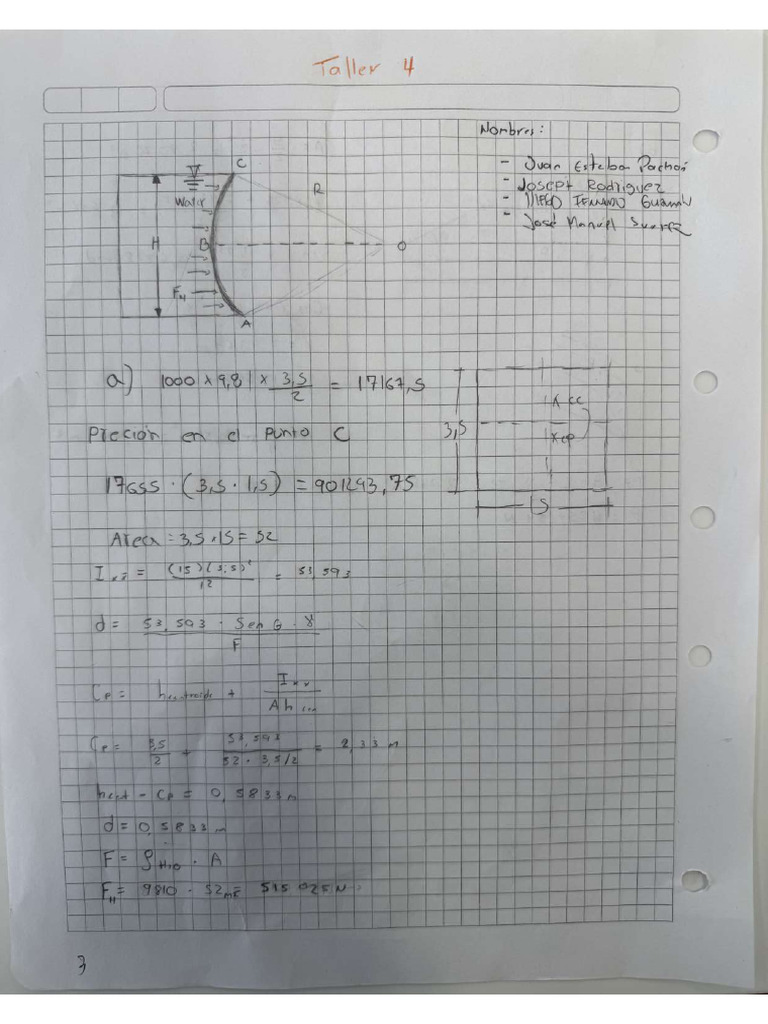 Taller 4
Nombres:
- Juan Esteban Pachón
- Josept Rodriguez
- José Manuel Suarez
C
R
Water
H
B
O
F_H
A
a) 1000 × 9,81 × 3,5/2 = 17167,5
Preción en el punto C
17655 · (3,5 · 1,5) = 901293,75
3,5
x cc
x cp
15
Area = 3,5 · 15 = 52
I_xx = (15)(3,5)³/12 = 53,593
d = 53,593 · Sen θ · γ / F
Cp = hcentroide + I_xx / A h cen
Cp = 3,5/2 + 53,593 / 52 · 3,5/2 = 2,33 m
hcent - Cp = 0,5833 m
d = 0,5833 m
F = ρ_H2O · A
F_H = 9810 · 52 m² = 515 025 N
3